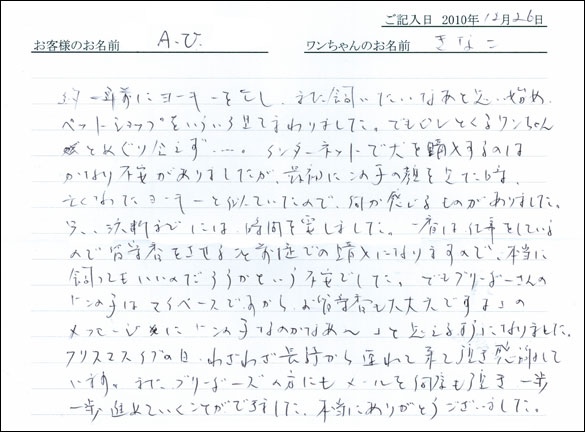 ご記入日 2010年12月26日
お客様のお名前 A.U. ワンちゃんのお名前 きなこ
約一年前にヨーキーを亡し、また飼いたいなあと思い始め、
ペットショップをいろいろ見てまわりました。でもピンとくるワンちゃん
とめぐり会えず……。インターネットで犬を購入するのは
かなり不安がありましたが、最初にこの子の顔を見た時、
亡くなったヨーキーと似ていたので、何か感じるものがありました。
決断までには、時間を要しました。一番は仕事をしている
ので留守番をさせること前提での購入になりますので、本当に
飼ってもいいのだろうかという不安でした。でもブリーダーさんの
「この子はマイペースですから、お留守番も大丈夫ですよ」の
メッセージに「この子なのかなあ〜」と思えるようになりました。
クリスマスイブの日、わざわざ長野から連れて来て頂き感謝して
います。また、ブリーダーズの方にもメールを何度も頂き一歩
一歩進めていくことができました。本当にありがとうございました。